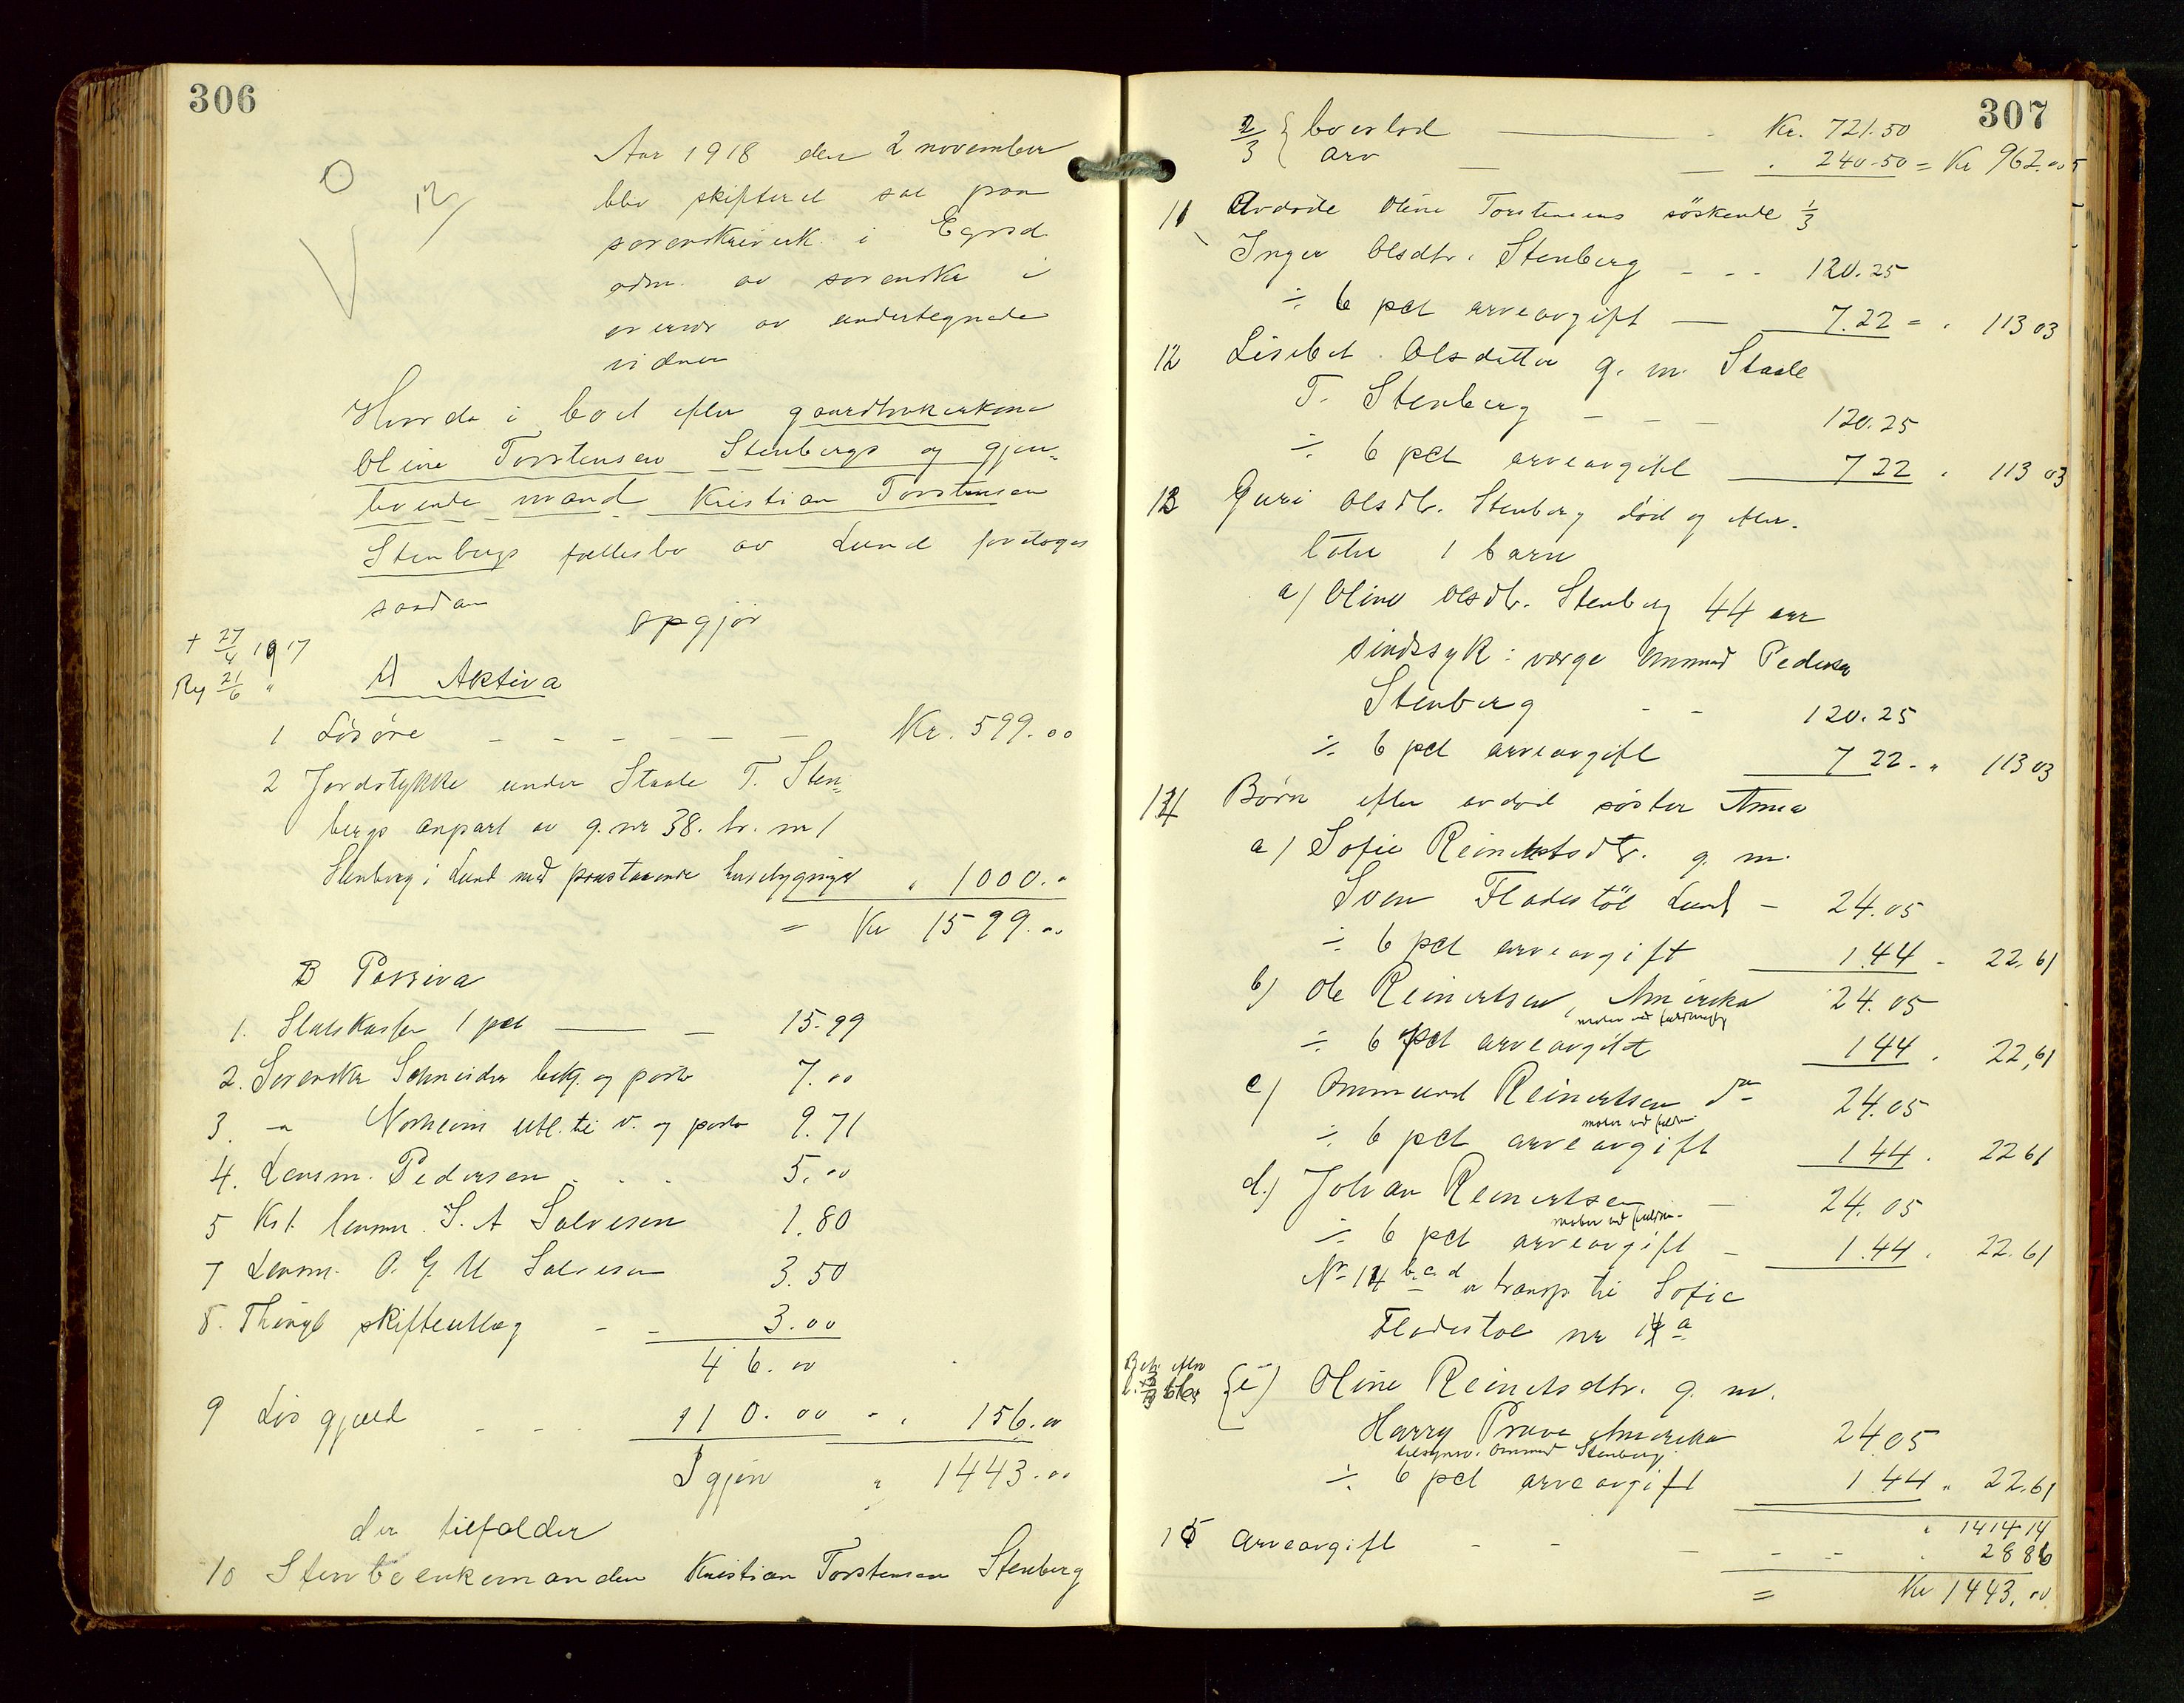 306
Aar 1918 den 2 november
blev skifteret sat paa
sorenskriverk. i Egrsd
adm. av sorenskr i
overvær av undertegnede
vidner
Hvorda i boet efter gaardbrukerkone
Oline Torstensen Stenbergs og gjen-
levende mand Kristian Torstensen
Stenbergs fællesbo av Lund foretoges
saadan
opgjør
+ 27/4 1917
Reg 21/6 "
A) Aktiva
1 Løsøre - - - - - - Kr. 599.00
2 Jordstykke under Staale T. Sten-
bergs anpart av g.nr 38. br. nr 1
Stenberg i Lund med paastaaende husebygninger " 1000."
= Kr 1599.00
B Passiva
1. Statskassen 1 pct — — 15.99
2. Sorenskr Schneider bekj. og porto 7.00
3. " Norheim utl. til v. og porto 9.71
4. Lensm. Pedersen . . . 5.00
5 Kst. lensm. S. A Salvesen 1.80
7 Lensm. O. G. U Salvesen 3.50
8. Thingl skifteutlæg - - 3.00
46.00
9 Løs gjæld - - - 110.00 - " 156.00
Igjen " 1443.00
der tilfalder
10 Stervboenkemanden Kristian Torstensen Stenberg
307
2/3 { boeslod — Kr. 721.50
arv — — " 240.50 = Kr 962.00
11 Avdøde Oline Torstensens søskende 1/3
Inger Olsdtr. Stenberg - - - 120.25
÷ 6 pct arveavgift — 7.22 = " 113 03
12 Lisebet Olsdatter g. m. Staale
T. Stenberg - - - 120.25
÷ 6 pct arveavgift 7 22 " 113 03
13 Guri Olsdtr. Stenberg død og efter-
latt 1 barn
a) Oline Olsdtr. Stenberg 44 aar
sindssyk: værge Ommund Pedersen
Stenberg - - 120.25
÷ 6 pct arveavgift 7 22 - " 113 03
14 Børn efter avdød søster Anna
a) Sofie Reinertsdtr. g. m.
Sven Fladestøl Lund - 24.05
÷ 6 pct arveavgift 1.44 - 22.61
b) Ole Reinertsen, Amerika 24.05
møter ved fuldmægtig
÷ 6 pct arveavgift 1 44 " 22,61
c) Ommund Reinertsen do 24.05
møter ved fuldm
÷ 6 pct arveavgift 1 44 " 22 61
d.) Johan Reinertsen — 24.05
møter ved fuldm.
÷ 6 pct arveavgift - 1.44 " 22.61
No 14 b. c. d er transp til Sofie
Fladestøl nr 14 a
{ e) Oline Reinertsdtr. g. m.
Harry Amerika 24.05
tilsynsv. Ommund Stenberg
÷ 6 pct arveavgift 1.44 " 22.61
" 1414 14
15 Arveavgift - - - - - " 28 86
= Kr 1443.00